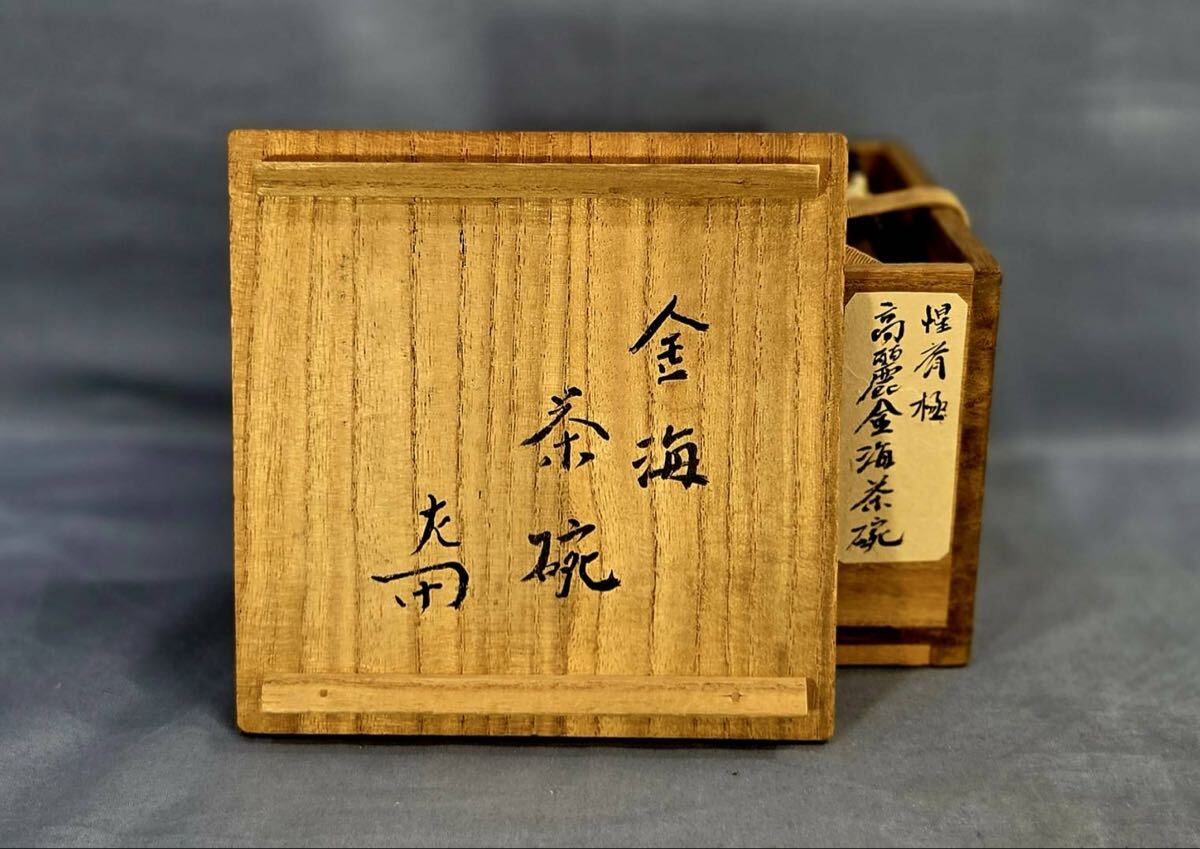 金海
茶碗
惺斎極
高麗金海茶碗